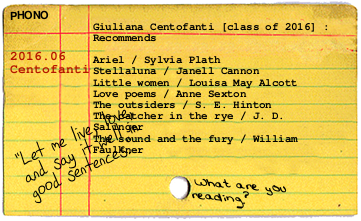 PHONO
Giuliana Centofanti [class of 2016] :
Recommends
2016.06
Centofanti
Ariel / Sylvia Plath
Stellaluna / Janell Cannon
Little women / Louisa May Alcott
Love poems / Anne Sexton
The outsiders / S. E. Hinton
The catcher in the rye / J. D.
Salinger
The sound and the fury / William
Faulkner
"Let me live, love,
and say it well in
good sentences."
What are you
reading?